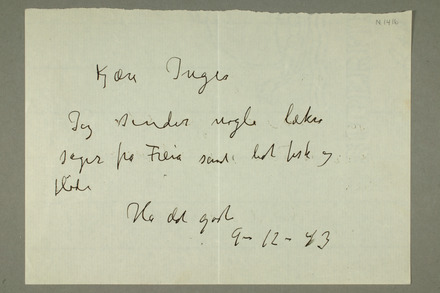 Kjære Inger
Jeg sender nogle lækre
sager fra Freia samt lidt fisk og
fløde
Ha det godt
9-12-43